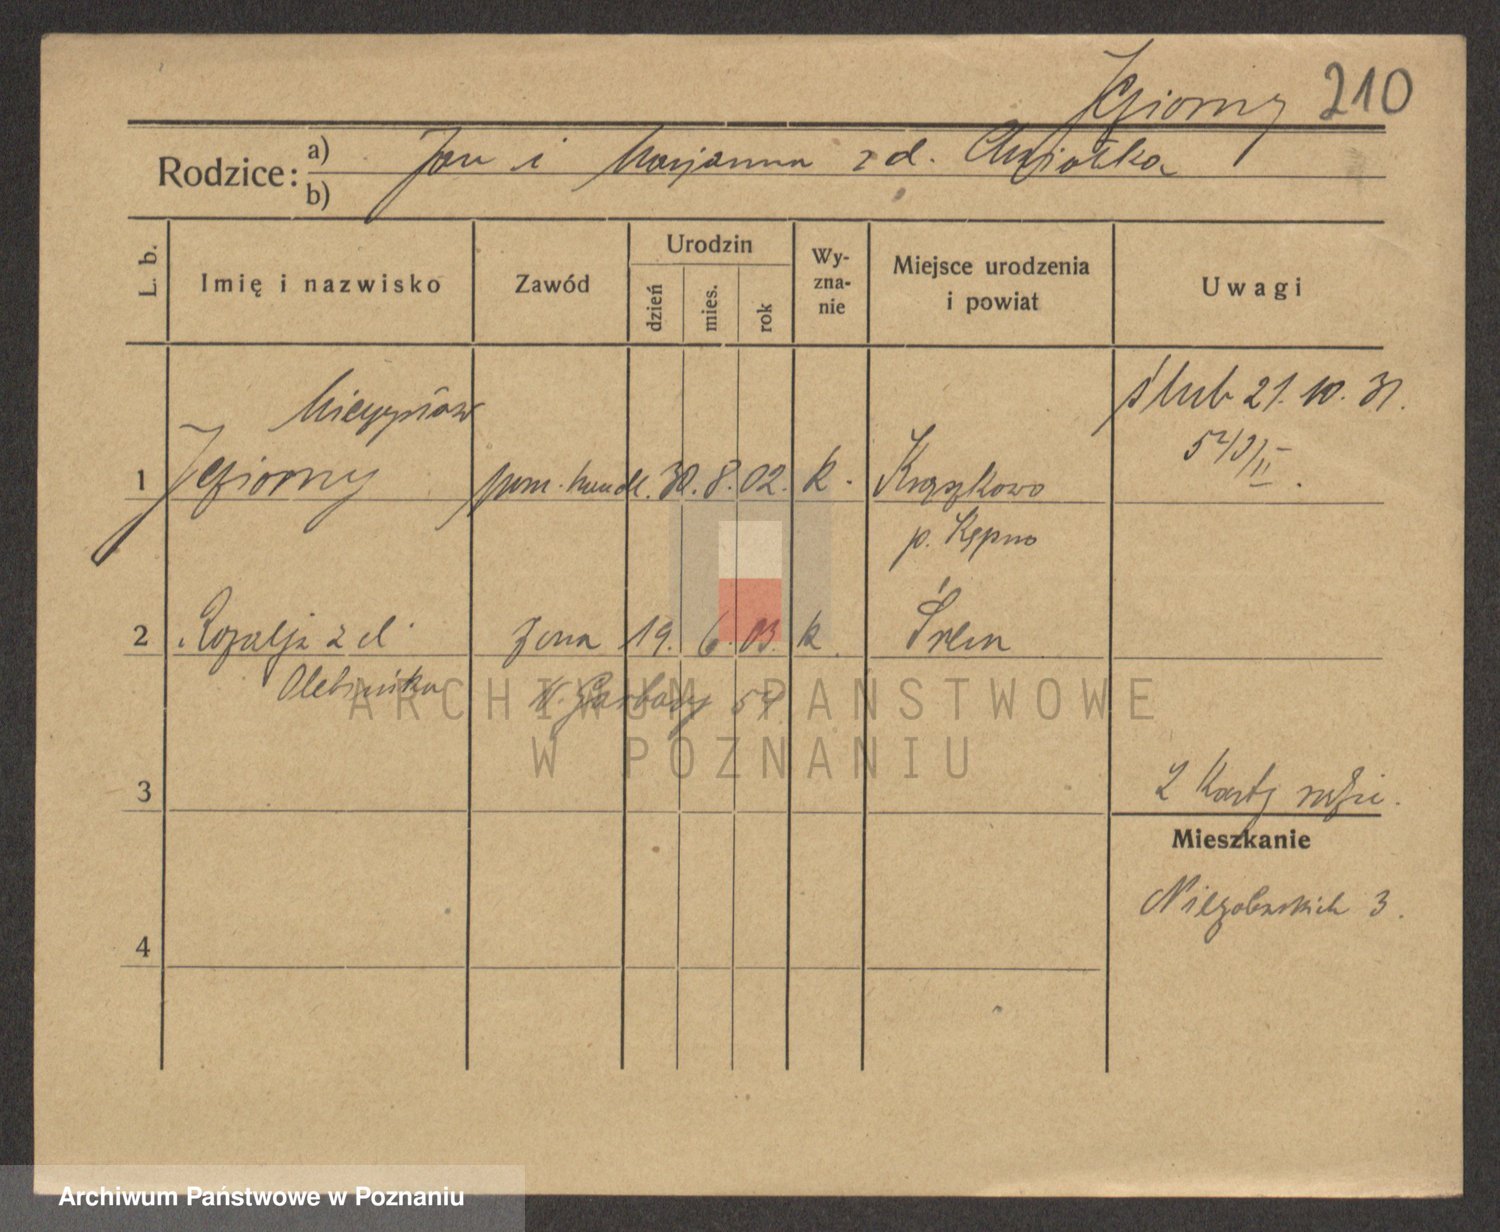 Jeziorny 210
Rodzice: a) Jan i Marjanna z d.
b)
L. b.
Imię i nazwisko
Zawód
Urodzin
dzień
mies.
rok
Wy-
zna-
nie
Miejsce urodzenia
i powiat
Uwagi
ślub 21. 10. 31.
1 Jeziorny pom. handl. 30. 8. 02. k.
p. Kępno
2 Rozalja z d. żona 19. 6. 03. k. Śrem
W. Garbary 54
ARCHIWUM PAŃSTWOWE
W POZNANIU
3
2 Karty
Mieszkanie
Niegolewskich 3.
4
Archiwum Państwowe w Poznaniu